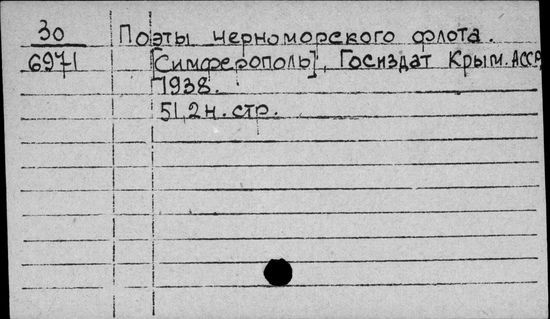 30 Поэты черноморского флота.
6971 [Симферополь], Госиздат Крым. АССР,
1938.
51,2н. стр.